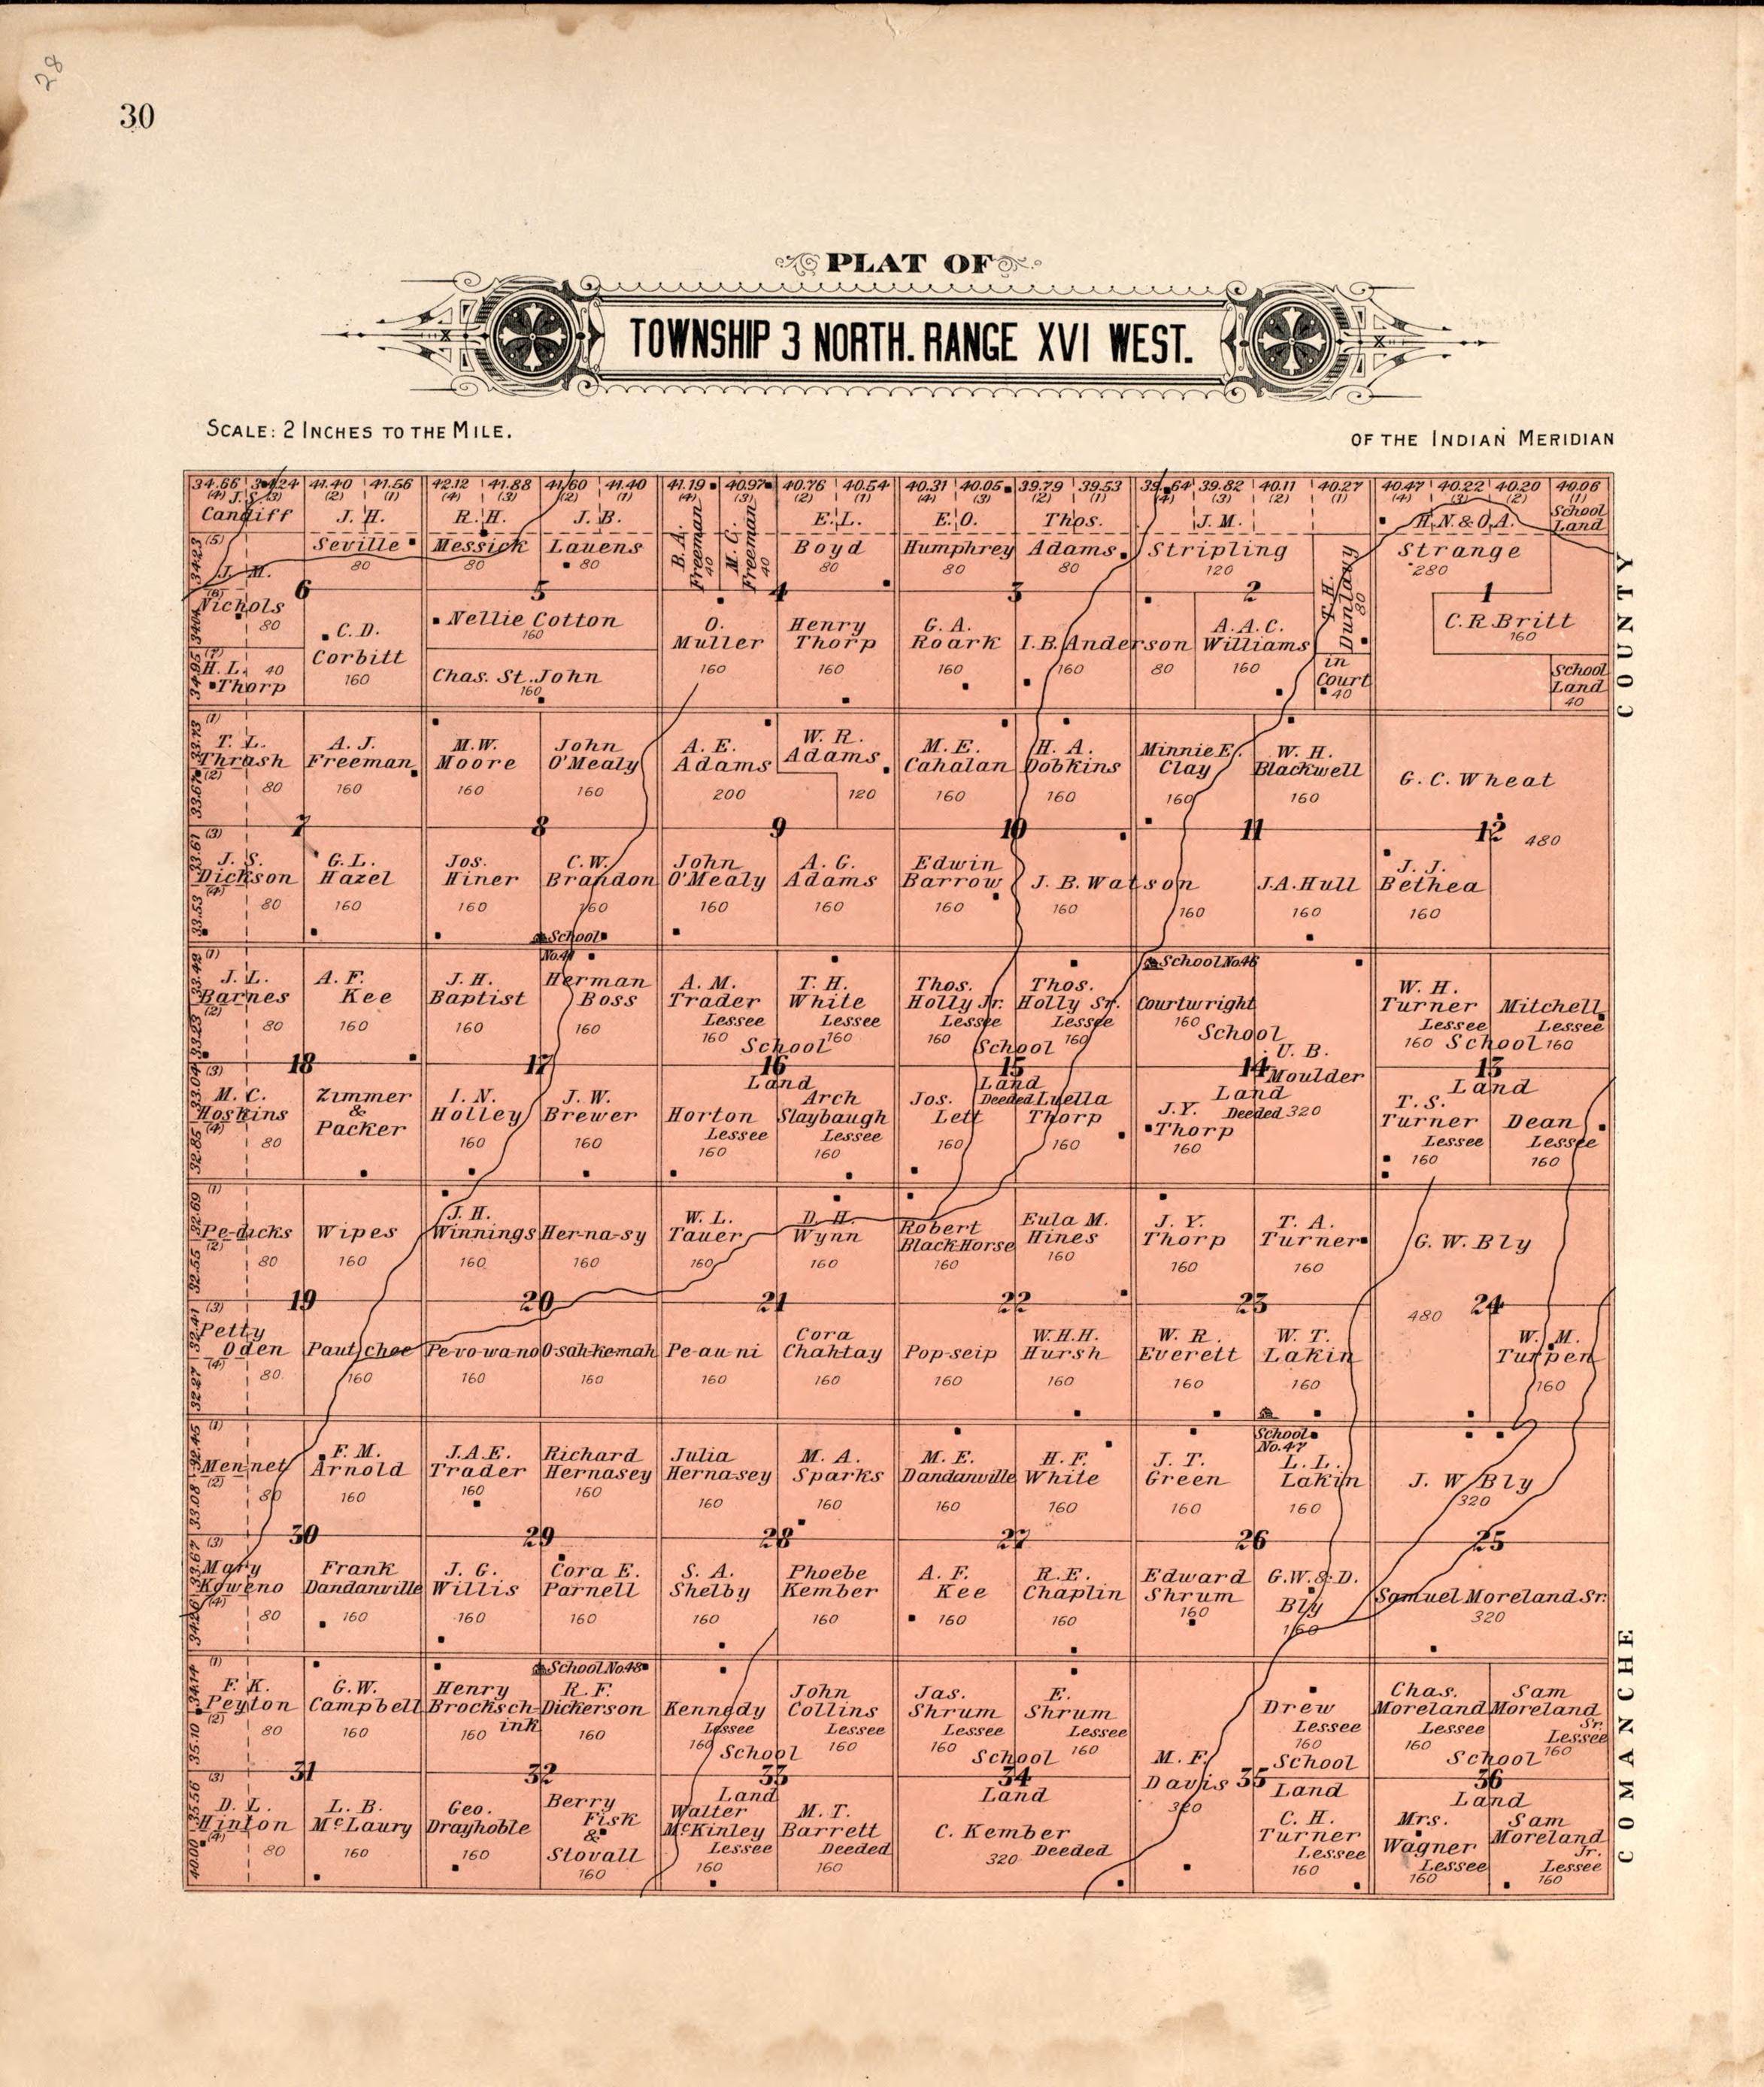 28
30
PLAT OF
TOWNSHIP 3 NORTH. RANGE XVI WEST.
SCALE: 2 INCHES TO THE MILE.
OF THE INDIAN MERIDIAN
34.66 34.24 41.40 41.56 42.12 41.88 41.60 41.40 41.19 40.97 40.76 40.54 40.31 40.05 39.79 39.53 39.64 39.82 40.11 40.27 40.47 40.22 40.20 40.06
(4) (3) (2) (1) (4) (3) (2) (1) (4) (3) (2) (1) (4) (3) (2) (1) (4) (3) (2) (1) (4) (3) (2) (1)
J. S.
Candiff
J. H.
Seville
80
R. H.
Messick
80
J. B.
Lauens
80
B. A.
Freeman
40
M. C.
Freeman
40
E. L.
Boyd
80
E. O.
Humphrey
80
Thos.
Adams
80
J. M.
Stripling
120
T. H.
Dunlavy
80
H. N. & O. A.
Strange
280
School
Land
(5)
34.23
J. M.
Nichols
80
(6)
6
5
4
3
2
1
C. D.
Corbitt
160
Nellie Cotton
160
O.
Muller
160
Henry
Thorp
160
G. A.
Roark
160
I. B. Anderson
160
80
A. A. C.
Williams
160
in
Court
40
C. R. Britt
160
(7)
34.95
H. L.
Thorp
40
Chas. St. John
160
School
Land
40
COUNTY
(1)
33.73
T. L.
Thrash
(2)
33.67
80
A. J.
Freeman
160
M. W.
Moore
160
John
O'Mealy
160
A. E.
Adams
200
W. R.
Adams
120
M. E.
Cahalan
160
H. A.
Dobkins
160
Minnie E.
Clay
160
W. H.
Blackwell
160
G. C. Wheat
480
7
8
9
10
11
12
(3)
33.61
J. S.
Dickson
(4)
33.53
80
G. L.
Hazel
160
Jos.
Hiner
160
C. W.
Brandon
160
John
O'Mealy
160
A. G.
Adams
160
Edwin
Barrow
160
J. B. Watson
160
160
J. A. Hull
160
J. J.
Bethea
160
School
No. 41
School No. 46
(1)
33.42
J. L.
Barnes
(2)
33.23
80
A. F.
Kee
160
J. H.
Baptist
160
Herman
Boss
160
A. M.
Trader
Lessee
160
T. H.
White
Lessee
160
Thos.
Holly Jr.
Lessee
160
Thos.
Holly Sr.
Lessee
160
Courtwright
160
W. H.
Turner
Lessee
160
Mitchell
Lessee
160
School
School
School
School
18
17
16
15
14
13
Land
Land
Land
Land
(3)
33.04
M. C.
Hoskins
(4)
32.85
80
Zimmer
&
Packer
I. N.
Holley
160
J. W.
Brewer
160
Horton
Lessee
160
Arch
Slaybaugh
Lessee
160
Jos.
Lett
160
Deeded
Luella
Thorp
160
J. Y.
Thorp
160
U. B.
Moulder
Deeded 320
T. S.
Turner
Lessee
160
Dean
Lessee
160
(1)
32.69
Pe-dicks
(2)
32.55
80
Wipes
160
J. H.
Winnings
160
Her-na-sy
160
W. L.
Tauer
160
D. H.
Wynn
160
Robert
Black Horse
160
Eula M.
Hines
160
J. Y.
Thorp
160
T. A.
Turner
160
G. W. Bly
480
19
20
21
22
23
24
(3)
32.41
Petty
Oden
(4)
32.27
80
Pautchee
160
Pe-vo-wa-no
160
O-sah-kemah
160
Pe-au-ni
160
Cora
Chahtay
160
Pop-seip
160
W. H. H.
Hursh
160
W. R.
Everett
160
W. T.
Lakin
160
W. M.
Turpen
160
(1)
32.45
Mennet
(2)
33.08
80
F. M.
Arnold
160
J. A. E.
Trader
160
Richard
Hernasey
160
Julia
Hernasey
160
M. A.
Sparks
160
M. E.
Dandanville
160
H. F.
White
160
J. T.
Green
160
School
No. 47
L. L.
Lakin
160
J. W. Bly
320
30
29
28
27
26
25
(3)
33.67
Mary
Koweno
(4)
34.26
80
Frank
Dandanville
160
J. G.
Willis
160
Cora E.
Parnell
160
S. A.
Shelby
160
Phoebe
Kember
160
A. F.
Kee
160
R. E.
Chaplin
160
Edward
Shrum
160
G. W. & D.
Bly
160
Samuel Moreland Sr.
320
School No. 48
(1)
34.74
F. K.
Peyton
(2)
35.10
80
G. W.
Campbell
160
Henry
Brocksch-
ink
160
R. F.
Dickerson
160
Kennedy
Lessee
160
John
Collins
Lessee
160
Jas.
Shrum
Lessee
160
E.
Shrum
Lessee
160
M. F.
Davis
320
Drew
Lessee
160
Chas.
Moreland
Lessee
160
Sam
Moreland
Sr.
Lessee
160
School
School
School
School
31
32
33
34
35
36
Land
Land
Land
Land
(3)
35.56
D. L.
Hinton
(4)
40.00
80
L. B.
McLaury
160
Geo.
Drayhoble
160
Berry
Fisk
&
Stovall
160
Walter
McKinley
Lessee
160
M. T.
Barrett
Deeded
160
C. Kember
320 Deeded
C. H.
Turner
Lessee
160
Mrs.
Wagner
Lessee
160
Sam
Moreland
Jr.
Lessee
160
COMANCHE